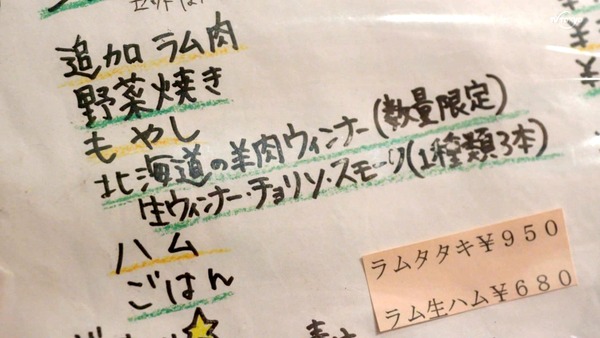 追加 ラム肉
野菜焼き
もやし
北海道の羊肉ウィンナー(数量限定)
生ウィンナー・チョリソ・スモーク(1種類3本)
ハム
ごはん
ラムタタキ¥950
ラム生ハム¥680